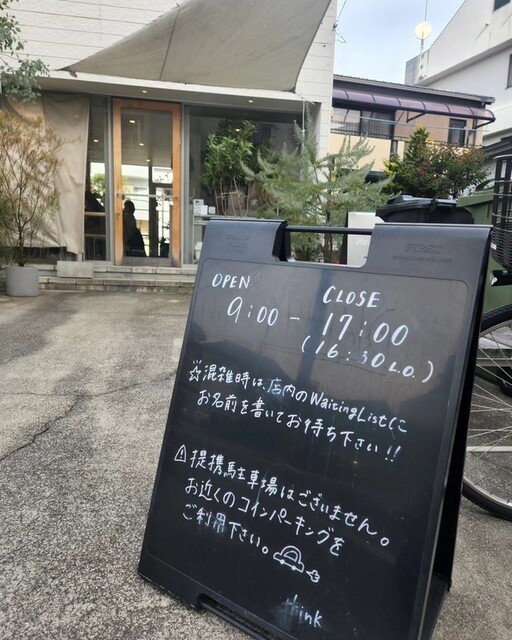 OPEN CLOSE
9:00 - 17:00
(16:30 L.O.)
☆混雑時は、店内のWaitingListに
お名前を書いてお待ち下さい!!
⚠提携駐車場はございません。
お近くのコインパーキングを
ご利用下さい。
think